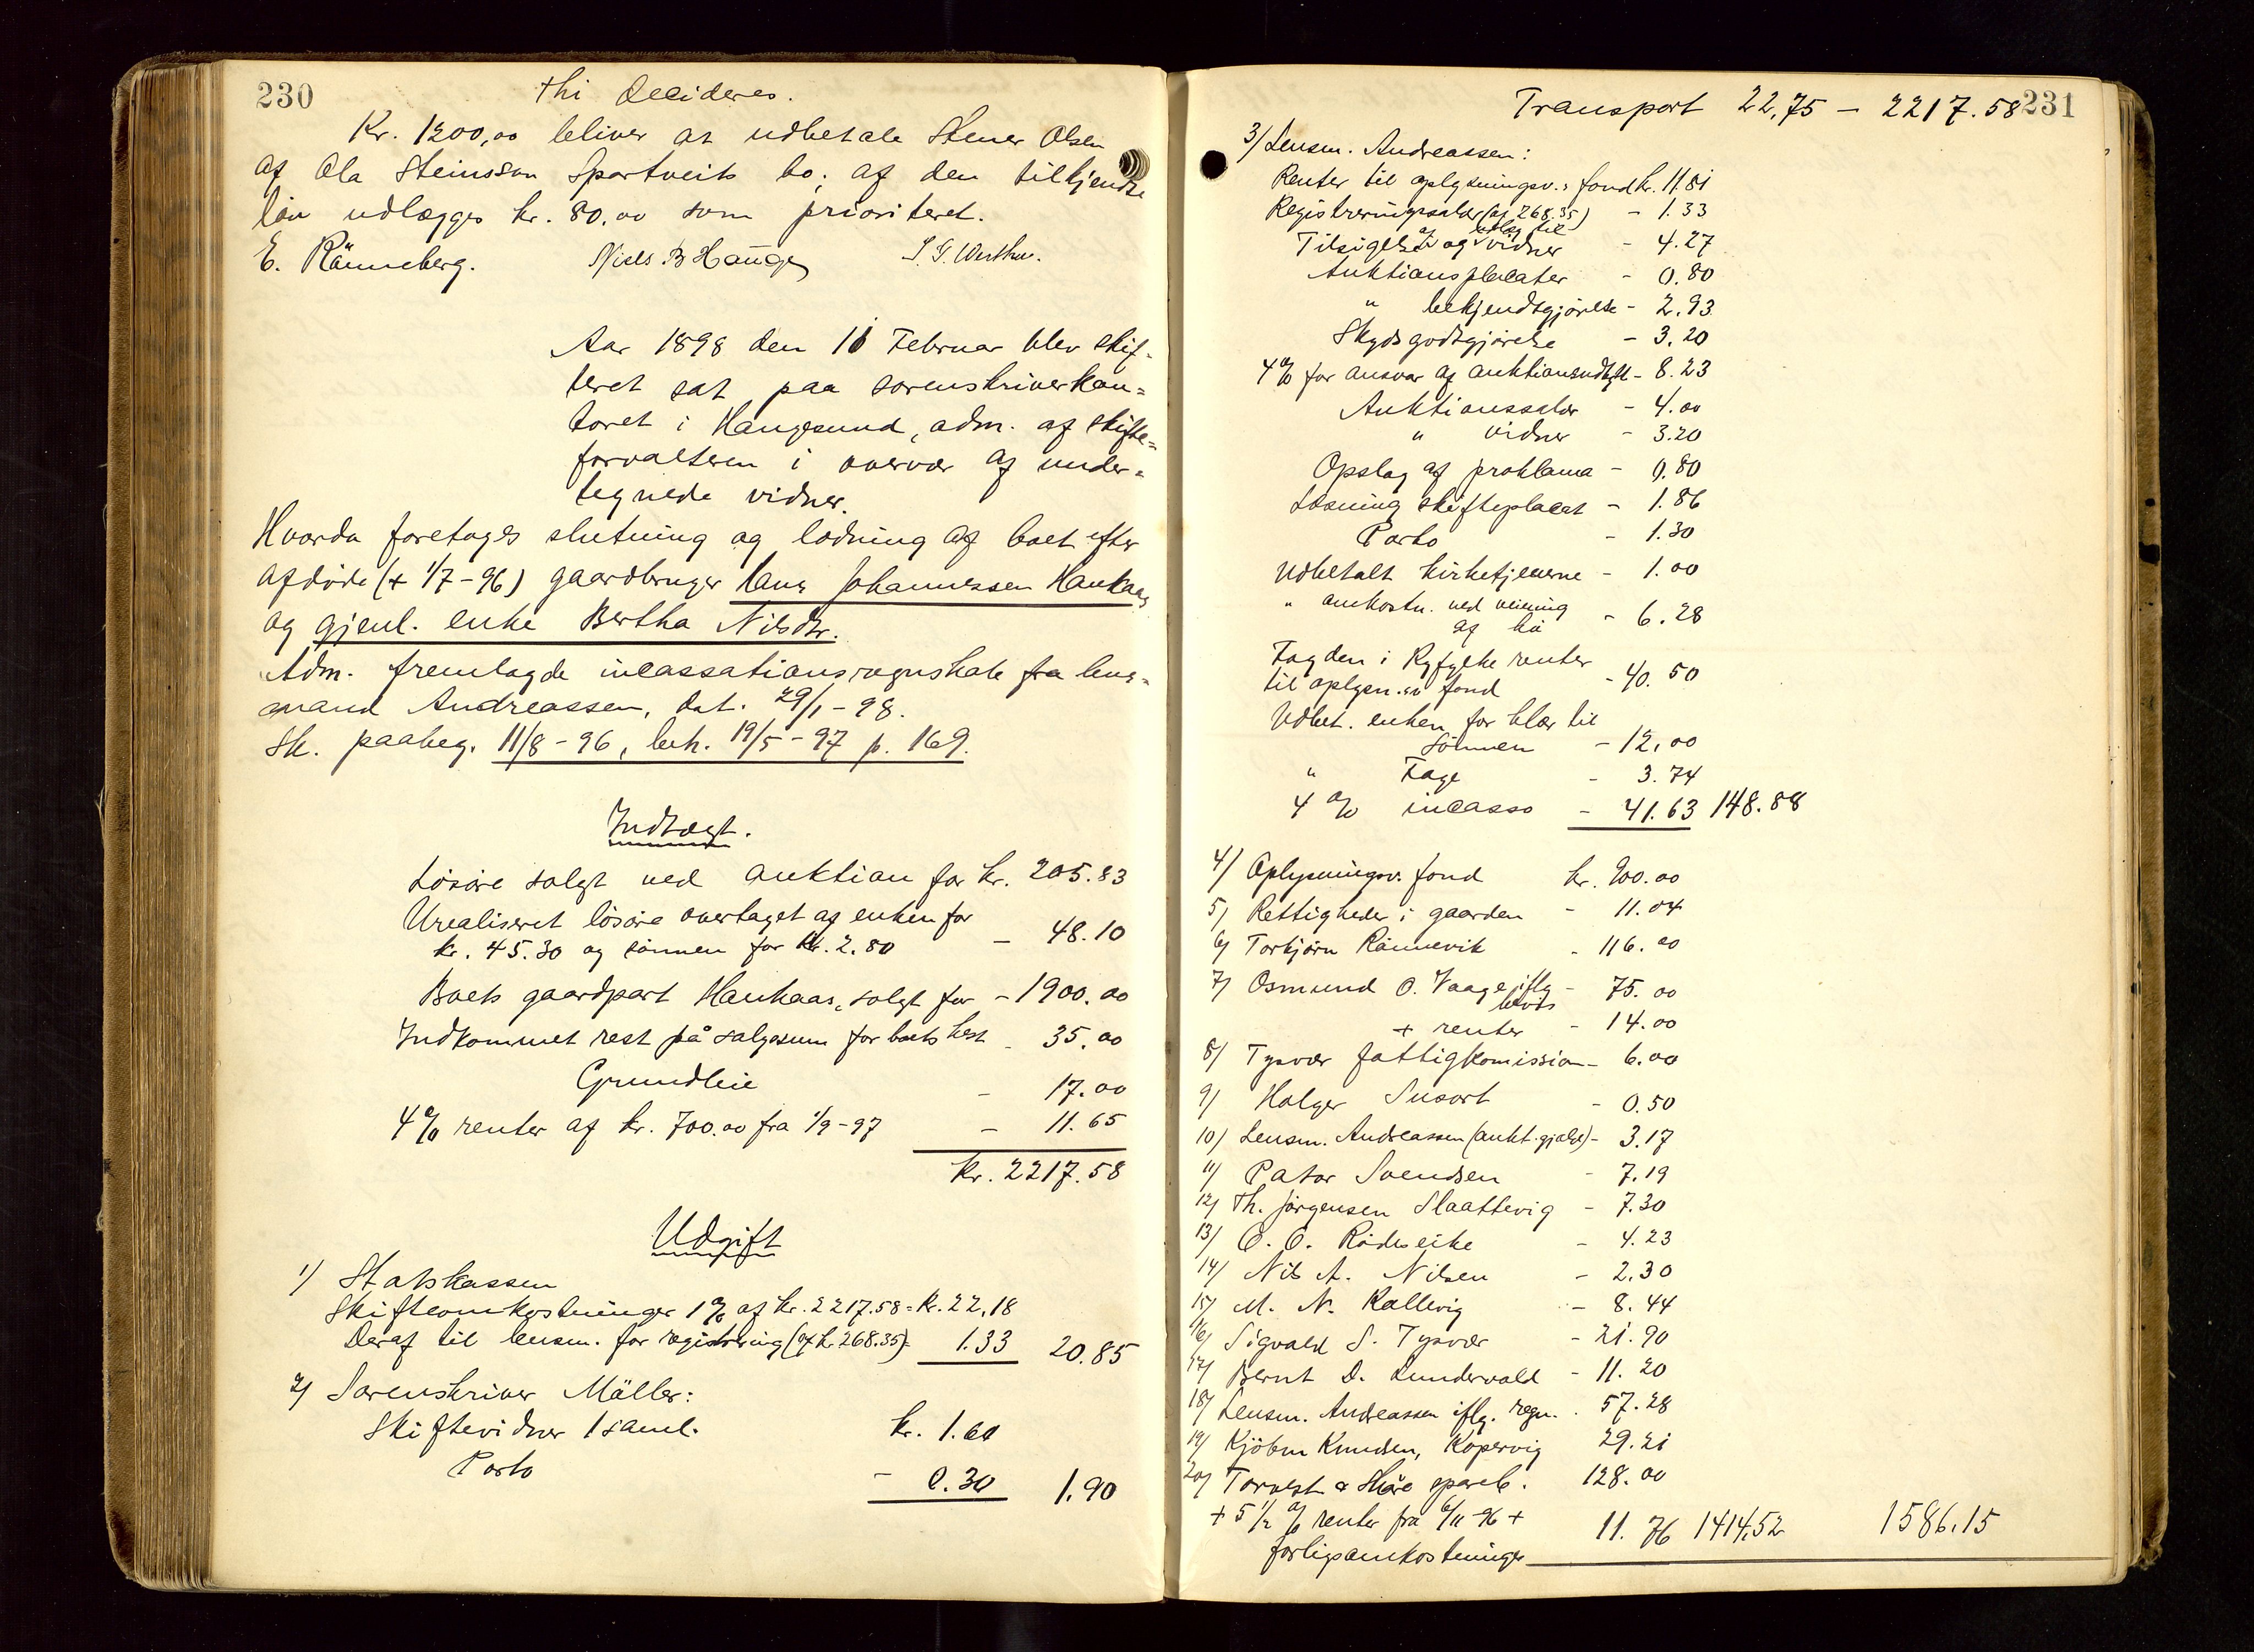 230
thi decideres.
Kr. 1200,00 bliver at udbetale Stener Olsen
af Ola Steinsson Spartveits bo; af den tilkjendte
løn udlægges kr. 80.00 som prioriteret.
E. Rönneberg. Niels B Hauge
Aar 1898 den 11 Februar blev skif-
teret sat paa sorenskriverkon=
toret i Haugesund, adm. af skifte=
forvalteren i overvær af under=
tegnede vidner.
Hvorda foretages slutning og lodning af boet efter
afdøde (+ 1/7-96) gaardbruger Hans Johannessen Haukaas
og gjenl. enke Bertha Nilsdtr.
Adm. fremlagde incassationsregnskab fra lens=
mand Andreassen, dat. 29/1-98.
Sk. paabeg. 11/8-96, beh. 19/5-97 p. 169.
Indtægt.
Løsøre solgt ved auktion for kr. 205.83
Urealiseret løsøre overtaget af enken for
kr. 45.30 og sønnen for kr. 2.80 - 48.10
Boets gaardpart Haukaas, solgt for - 1900.00
Indkommet rest på salgssum for boets hest - 35.00
Grundleie - 17.00
4 % renter af kr. 700.00 fra 1/9-97 - 11.65
Kr. 2217.58
Udgift
1) Statskassen
Skifteomkostninger 1 % af kr. 2217.58 = kr. 22,18
Deraf til lensm. for registrering (af kr 268.35) - 1.33 20.85
2) Sorenskriver Möller:
Skiftevidner 1 saml. kr. 1.60
Porto - 0.30 1.90
231
Transport 22,75 - 2217.58
3) Lensm. Andreassen:
Renter til oplysningsv.s fond kr. 11.81
Registreringssalær (af 268.35) - 1.33
Tilsigelse af og udlæg til vidner - 4.27
Auktionsplacater - 0.80
" bekjendtgjörelse - 2.93
Skydsgodtgjørelse - 3.20
4 % for ansvar af auktionsudbytte - 8.23
Auktionssalær - 4.00
" vidner - 3.20
Opslag af proklama - 0.80
Løsning skifteplacat - 1.86
Porto - 1.30
Udbetalt kirketjenerne - 1.00
" omkostn. ved veiening
af hö - 6.28
Fogden i Ryfylke renter
til oplysn.sv fond - 40.50
Udbet. enken for klær til
Sönnen - 12,00
" Fage - 3.74
4 % incasso - 41.63 148.88
4) Oplysningsv. fond kr. 900.00
5) Rettigheder i gaarden - 11.04
6) Torbjørn Rönnevik - 116.00
7) Osmund O. Vaage iflg
bevis - 75.00
+ renter - 14.00
8) Tysvær fattigkomission - 6.00
9) Holger Susort - 0.50
10) Lensm. Andreassen (aukt. gjæld) - 3.17
11) Pator Svendsen - 7.19
12) Th. Jörgensen Slaattevig - 7.30
13) O. O. Rödseike - 4.23
14) Nils A. Nilsen - 2.30
15) M. N. Kallevig - 8.44
16) Sigvald S. Tysvær - 21.90
17) Bernt D. Lundervold - 11.20
18) Lensm. Andreassen iflg. regn. - 57.28
19) Kjöbm Knudsen, Kopervig 29.21
20) Torvest & Skåre spareb. 128.00
+ 5 1/2 % renter fra 6/11-96 +
forligsomkostninger 11.76 1414,52 1586.15